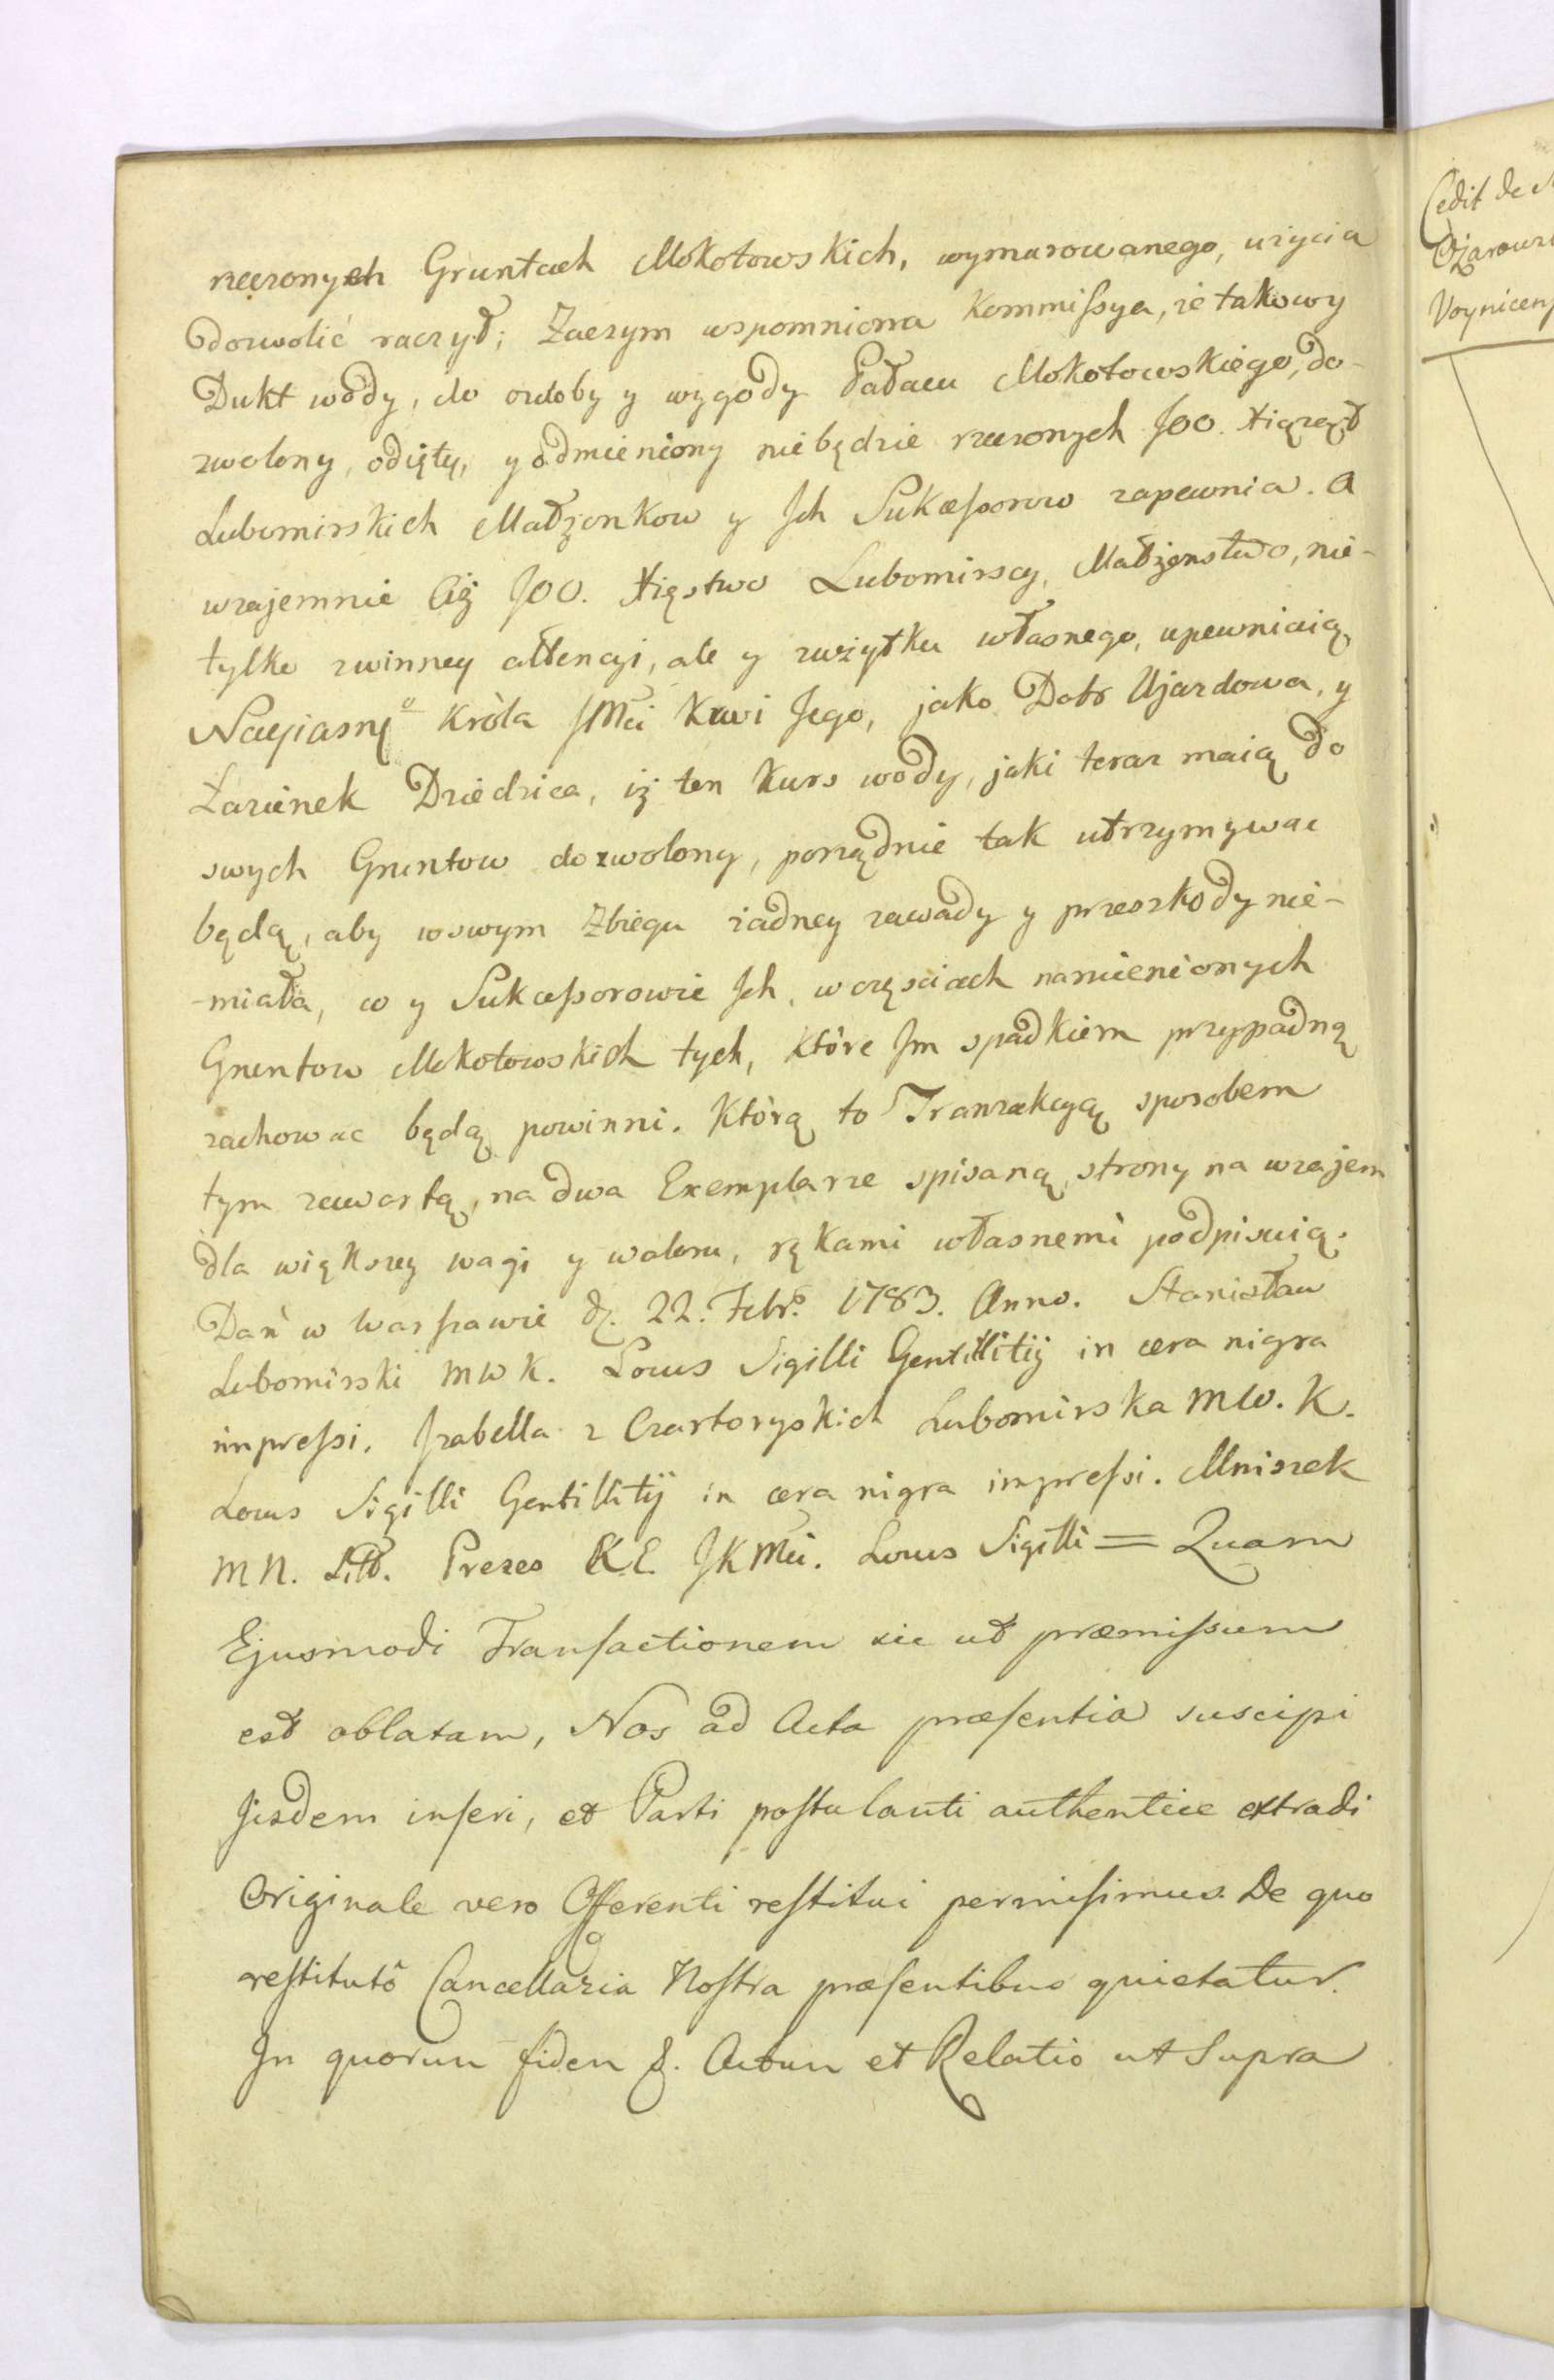 rzeczonych Gruntach Mokotowskich, wymurowanego, użycia
dozwolić raczył; Zaczym wspomniona Kommissya, że takowy
Dukt wody, do ozdoby y wygody Pałacu Mokotowskiego, do-
zwolony, odięty, y odmieniony niebędzie rzeczonych JOO. Xiążąt
Lubomirskich Małżonkow y Jch Sukcessorow zapewnia. A
wzajemnie Ciż JOO. Xięstwo Lubomirscy, Małżenstwo, nie-
tylko zwinney attencyi, ale y zużytku własnego, upewniaią
Nayiasnᵒ Króla JMci Krwi Jego, jako Dobr Ujazdowa, y
Łazienek Dziedzica, iż ten Kurs wody, jaki teraz maią do
swych Gruntow dozwolony, porządnie tak utrzymywac
będą, aby wswym Zbiegu żadney zawady y przeszkody nie-
-miała, co y Sukcessorowie Jch, wczęsciach namienionych
Gruntow Mokotowskich tych, które Jm spadkiem przypadną
zachowac będą powinni. Którą to Tranzakcyą sposobem
tym zawartą, na dwa Exemplarze spisaną, strony na wzajem
dla większey wagi y waloru, rękami własnemi podpisuią.
Dań w Warszawie d. 22. Febrᵒ 1783. Anno. Stanisław
Lubomirski MWK. Locus Sigilli Gentillitij in cera nigra
impressi. Jzabella z Czartoryskich Lubomirska MW. K.
Locus Sigilli Gentillitij in cera nigra impressi. Mniszek
MN. Litt. Prezes K.E. JKMci. Locus Sigilli = Quam
Ejusmodi Transactionem sic ut præmissum
est oblatam, Nos ad Acta præsentia suscipi
Jisdem inseri, et Parti postulanti authentice extradi
Originale vero Offerenti restitui permisimus. De quo
restitutô Cancellaria Nostra præsentibus quietatur.
In quorum fidem &. Actum et Relatio ut Supra
Cedit de
Ożarows